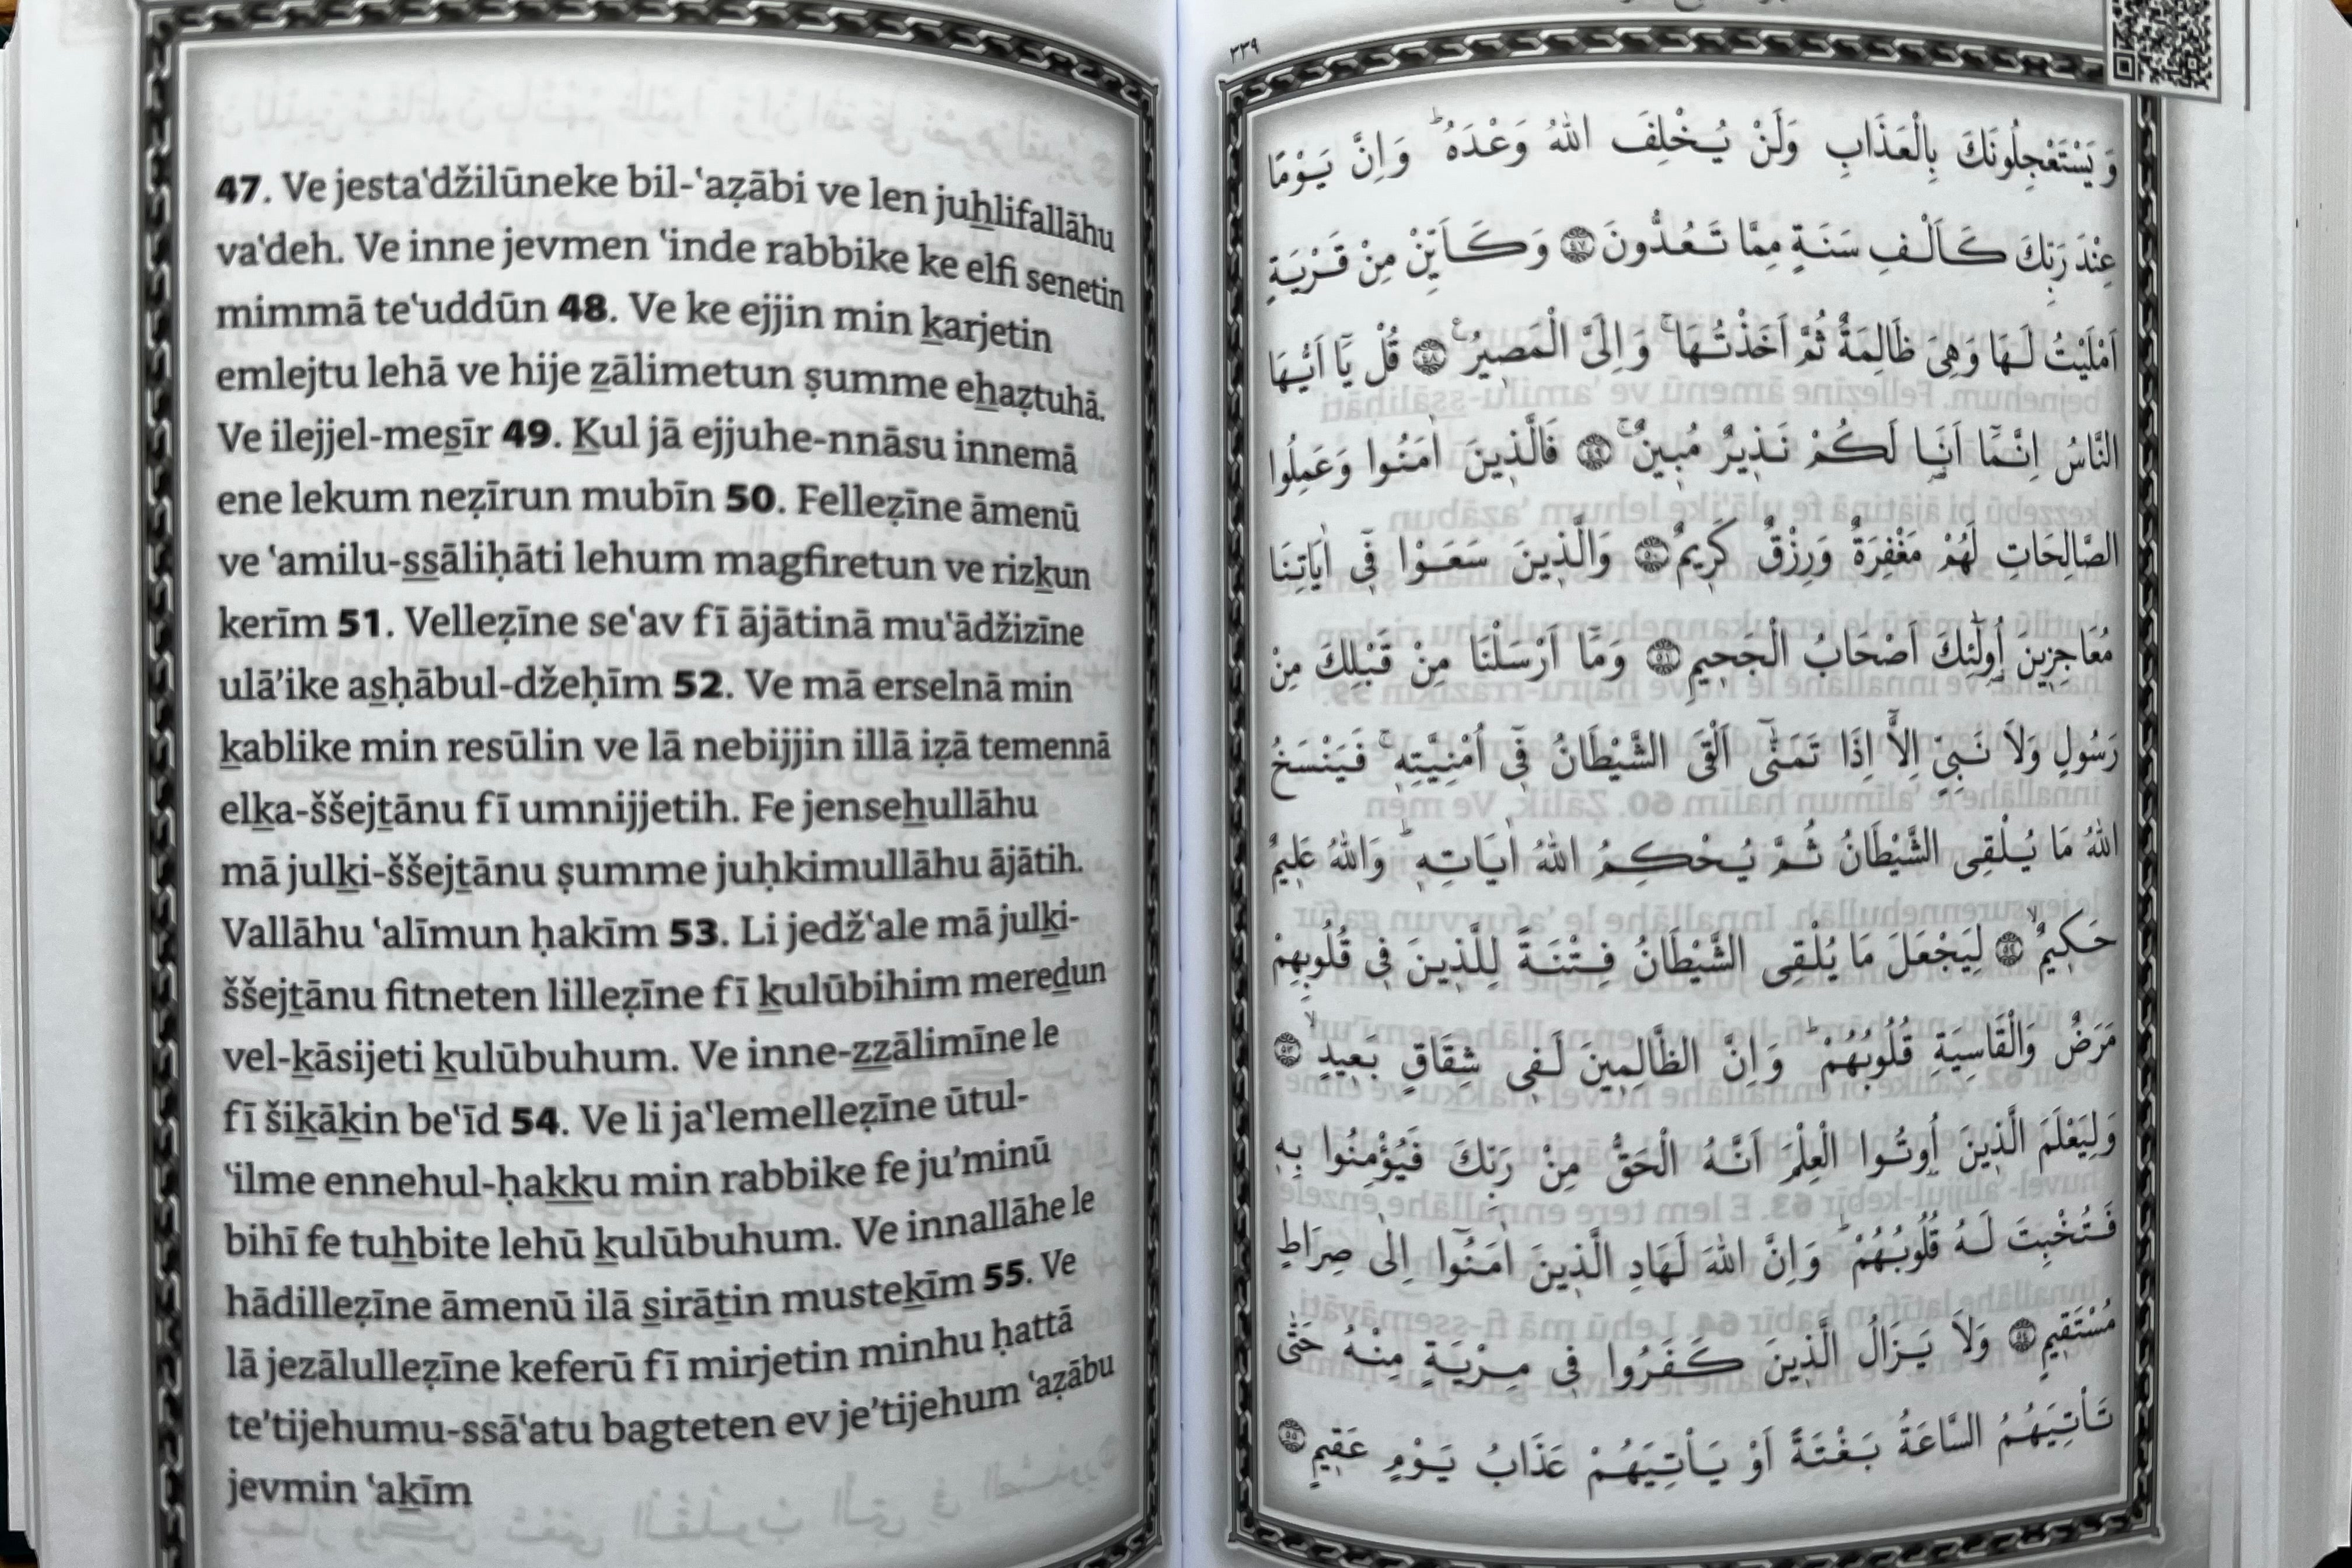 47. Ve jesta‘džilūneke bil-‘aẓābi ve len juẖlifallāhu
va‘deh. Ve inne jevmen ‘inde rabbike ke elfi senetin
mimmā te‘uddūn 48. Ve ke ejjin min ḵarjetin
emlejtu lehā ve hije ẕālimetun ṣumme eẖaẓtuhā.
Ve ilejjel-mes̱īr 49. Ḵul jā ejjuhe-nnāsu innemā
ene lekum neẓīrun mubīn 50. Felleẓīne āmenū
ve ‘amilu-s̱s̱āliḥāti lehum magfiretun ve rizḵun
kerīm 51. Velleẓīne se‘av fī ājātinā mu‘ādžizīne
ulā’ike as̱ḥābul-džeḥīm 52. Ve mā erselnā min
ḵablike min resūlin ve lā nebijjin illā iẓā temennā
elḵa-ššejṯānu fī umnijjetih. Fe jenseẖullāhu
mā julḵi-ššejṯānu ṣumme juḥkimullāhu ājātih.
Vallāhu ‘alīmun ḥakīm 53. Li jedž‘ale mā julḵi-
ššejṯānu fitneten lilleẓīne fī ḵulūbihim mereḏun
vel-ḵāsijeti ḵulūbuhum. Ve inne-ẕẕālimīne le
fī šiḵāḵin be‘īd 54. Ve li ja‘lemelleẓīne ūtul-
‘ilme ennehul-ḥaḵḵu min rabbike fe ju’minū
bihī fe tuẖbite lehū ḵulūbuhum. Ve innallāhe le
hādilleẓīne āmenū ilā s̱irāṯin musteḵīm 55. Ve
lā jezālulleẓīne keferū fī mirjetin minhu ḥattā
te’tijehumu-ssā‘atu bagteten ev je’tijehum ‘aẓābu
jevmin ‘aḵīm
٣٣٩
وَيَسْتَعْجِلُونَكَ بِالْعَذَابِ وَلَنْ يُخْلِفَ اللّٰهُ وَعْدَهُۜ وَاِنَّ يَوْمًا
عِنْدَ رَبِّكَ كَاَلْفِ سَنَةٍ مِمَّا تَعُدُّونَ ﴿٤٧﴾ وَكَاَيِّنْ مِنْ قَرْيَةٍ
اَمْلَيْتُ لَهَا وَهِيَ ظَالِمَةٌ ثُمَّ اَخَذْتُهَاۚ وَاِلَيَّ الْمَصِيرُ۟ ﴿٤٨﴾ قُلْ يَٓا اَيُّهَا
النَّاسُ اِنَّمَٓا اَنَا۬ لَكُمْ نَذِيرٌ مُبِينٌۚ ﴿٤٩﴾ فَالَّذِينَ اٰمَنُوا وَعَمِلُوا
الصَّالِحَاتِ لَهُمْ مَغْفِرَةٌ وَرِزْقٌ كَرِيمٌ ﴿٥٠﴾ وَالَّذِينَ سَعَوْا فِٓي اٰيَاتِنَا
مُعَاجِزِينَ اُو۬لٰٓئِكَ اَصْحَابُ الْجَحِيمِ ﴿٥١﴾ وَمَٓا اَرْسَلْنَا مِنْ قَبْلِكَ مِنْ
رَسُولٍ وَلَا نَبِيٍّ اِلَّٓا اِذَا تَمَنّٰٓى اَلْقَى الشَّيْطَانُ فِٓي اُمْنِيَّتِهِۚ فَيَنْسَخُ
اللّٰهُ مَا يُلْقِي الشَّيْطَانُ ثُمَّ يُحْكِمُ اللّٰهُ اٰيَاتِهِۜ وَاللّٰهُ عَلِيمٌ
حَكِيمٌۙ ﴿٥٢﴾ لِيَجْعَلَ مَا يُلْقِي الشَّيْطَانُ فِتْنَةً لِلَّذِينَ فِي قُلُوبِهِمْ
مَرَضٌ وَالْقَاسِيَةِ قُلُوبُهُمْۜ وَاِنَّ الظَّالِمِينَ لَفِي شِقَاقٍ بَعِيدٍۙ ﴿٥٣﴾
وَلِيَعْلَمَ الَّذِينَ اُو۫تُوا الْعِلْمَ اَنَّهُ الْحَقُّ مِنْ رَبِّكَ فَيُؤْمِنُوا بِهِ
فَتُخْبِتَ لَهُ قُلُوبُهُمْۜ وَاِنَّ اللّٰهَ لَهَادِ الَّذِينَ اٰمَنُٓوا اِلٰى صِرَاطٍ
مُسْتَقِيمٍ ﴿٥٤﴾ وَلَا يَزَالُ الَّذِينَ كَفَرُوا فِي مِرْيَةٍ مِنْهُ حَتّٰى
تَأْتِيَهُمُ السَّاعَةُ بَغْتَةً اَوْ يَأْتِيَهُمْ عَذَابُ يَوْمٍ عَقِيمٍ ﴿٥٥﴾